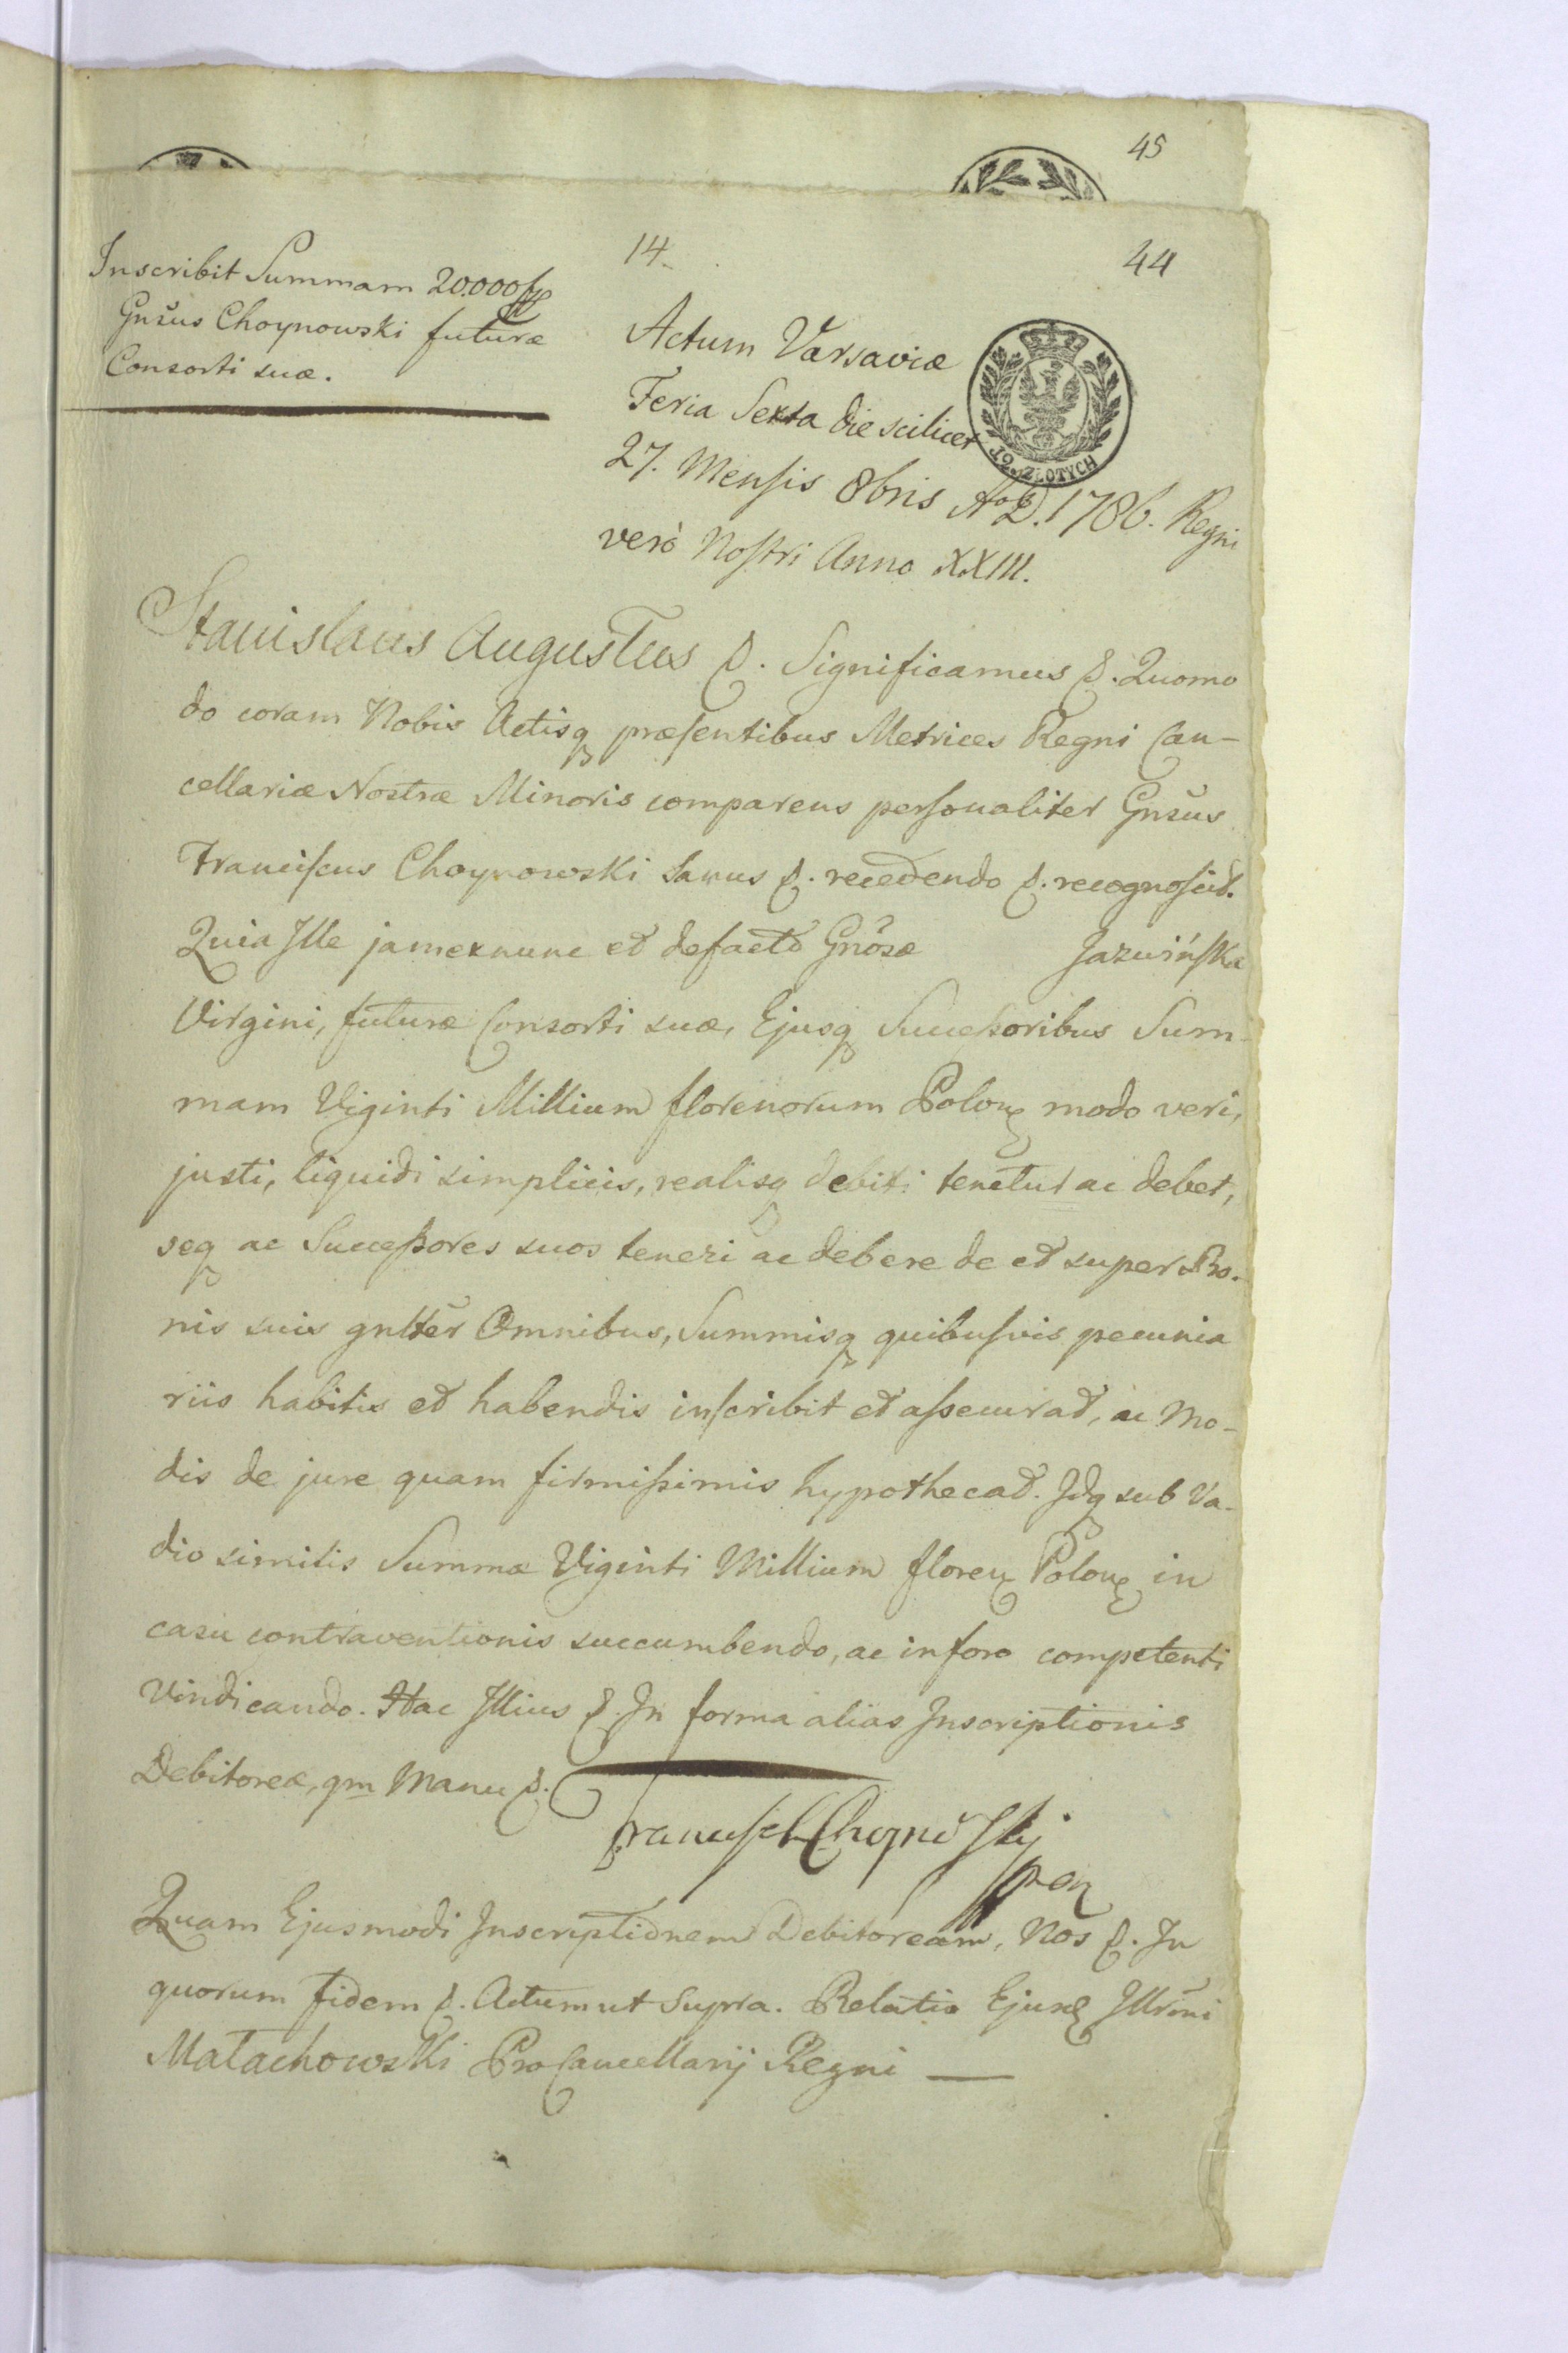 45
14.
44
Inscribit Summam 20.000 fl
Gnsus Choynowski futuræ
Consorti suæ.
Actum Varsaviæ
Feria Sexta die scilicet
27. Mensis 8bris Aº D. 1786. Regni
verò Nostri Anno XXIII.
12. ZŁOTYCH
Stanislaus Augustus &. Significamus &. Quomo
do coram Nobis Actisq præsentibus Metrices Regni Can-
cellariæ Nostræ Minoris comparens personaliter Gnsus
Franciscus Choynowski sanus &. recedendo &. recognoscit.
Quia Ille jamexnunc et defacto Gnosæ Jazwińska
Virgini, futuræ Consorti suæ, Ejusq Successoribus Sum-
mam Viginti Millium florenorum Polon modo veri,
justi, liquidi simplicis, realisq debiti tenetur ac debet,
seq ac Successores suos teneri ac debere de et super Bo-
nis suis gnlter Omnibus, Summisq quibusvis pecunia
riis habitis et habendis inscribit et assecurat, ac Mo-
dis de jure quam firmissimis hypothecat. Idq sub Va-
dio similis Summæ Viginti Millium floren Polon in
casu contraventionis succumbendo, ac inforo competenti
Vindicando. Hac Illius &. In forma alias Inscriptionis
Debitoreæ, qm Manu &.
Quam Ejusmodi Inscriptionem Debitoream, Nos &. In
quorum fidem &. Actum ut Supra. Relatio Ejusd Illrmi
Małachowski ProCancellarij Regni